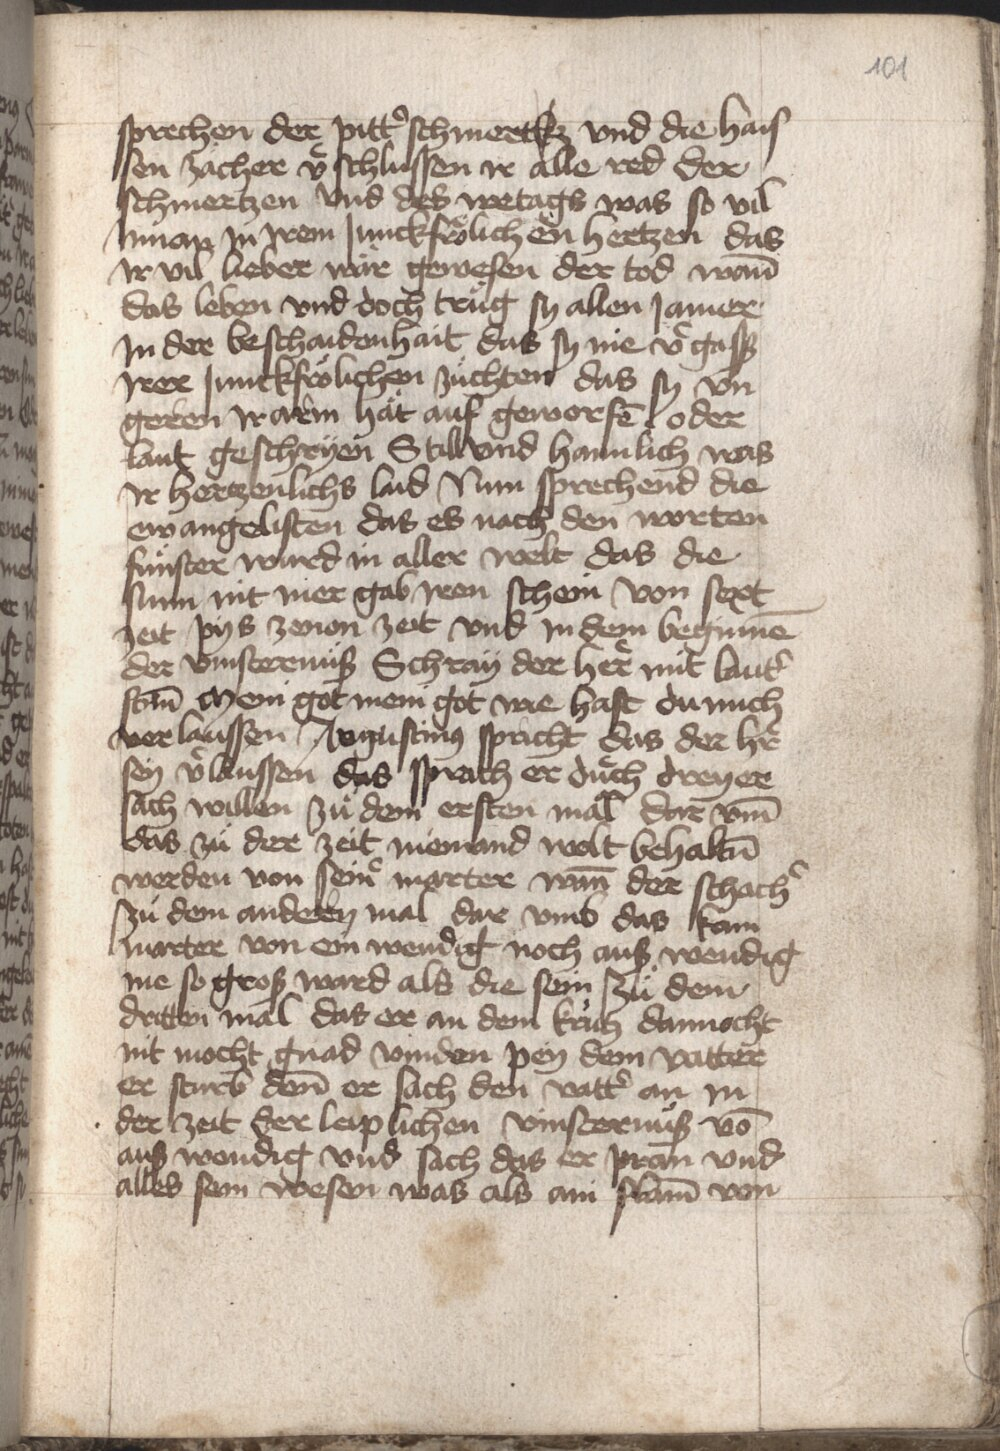 101
sprechen der pittˀ schmertz vnd die hais
sen zächer vˀschlussen ir alle red der
schmertzen vnd des wetags was so vil
Innan in irem Junckfrölichen hertzen das
ir vil lieber wär gewesen der tod wañ
das leben vnd doch trůg sy allen Jamer
In der beschaidenhait das sy nie vˀgasß
irer Junckfrölichen züchten das sy vn
geren ir arem hät auf geworfē oder
laut geschryen Still vnd haimlich was
ir hertzenlichs laid Nun sprechend die
ewangelisten das es nach den worten
finster ward in aller welt das die
sunn nit mer gab iren schein von sext
zeit pys zenon zeit vnd in dem beginnē
der vinsternuß Schray der herˀ mit lautˀ
stim̄ Mein got mein got wie hast du mich
verlaussen Augustinus spricht das der hr̄
sey vˀlaussen das sprach er durch dreyer
sach willen zu dem ersten mal dar vm̄
das zu der zeit niemand wolt behaltn̄
werden von seinˀ marter wañ der schachˀ
zu dem anderen mal dar vmb das kain
marter von ein wendig noch auß wendig
nie so groß ward als die sein zu dem
dritten mal das er an dem krütz dannocht
nit mocht gnad vinden pey dem vatter
er sturb den̄ er sach den vattˀ an in
der zeit der leiplichen vinsternuß vō
auß wendig vnd sach das er pran vnd
alles sein wesen was als ain flam̄ von